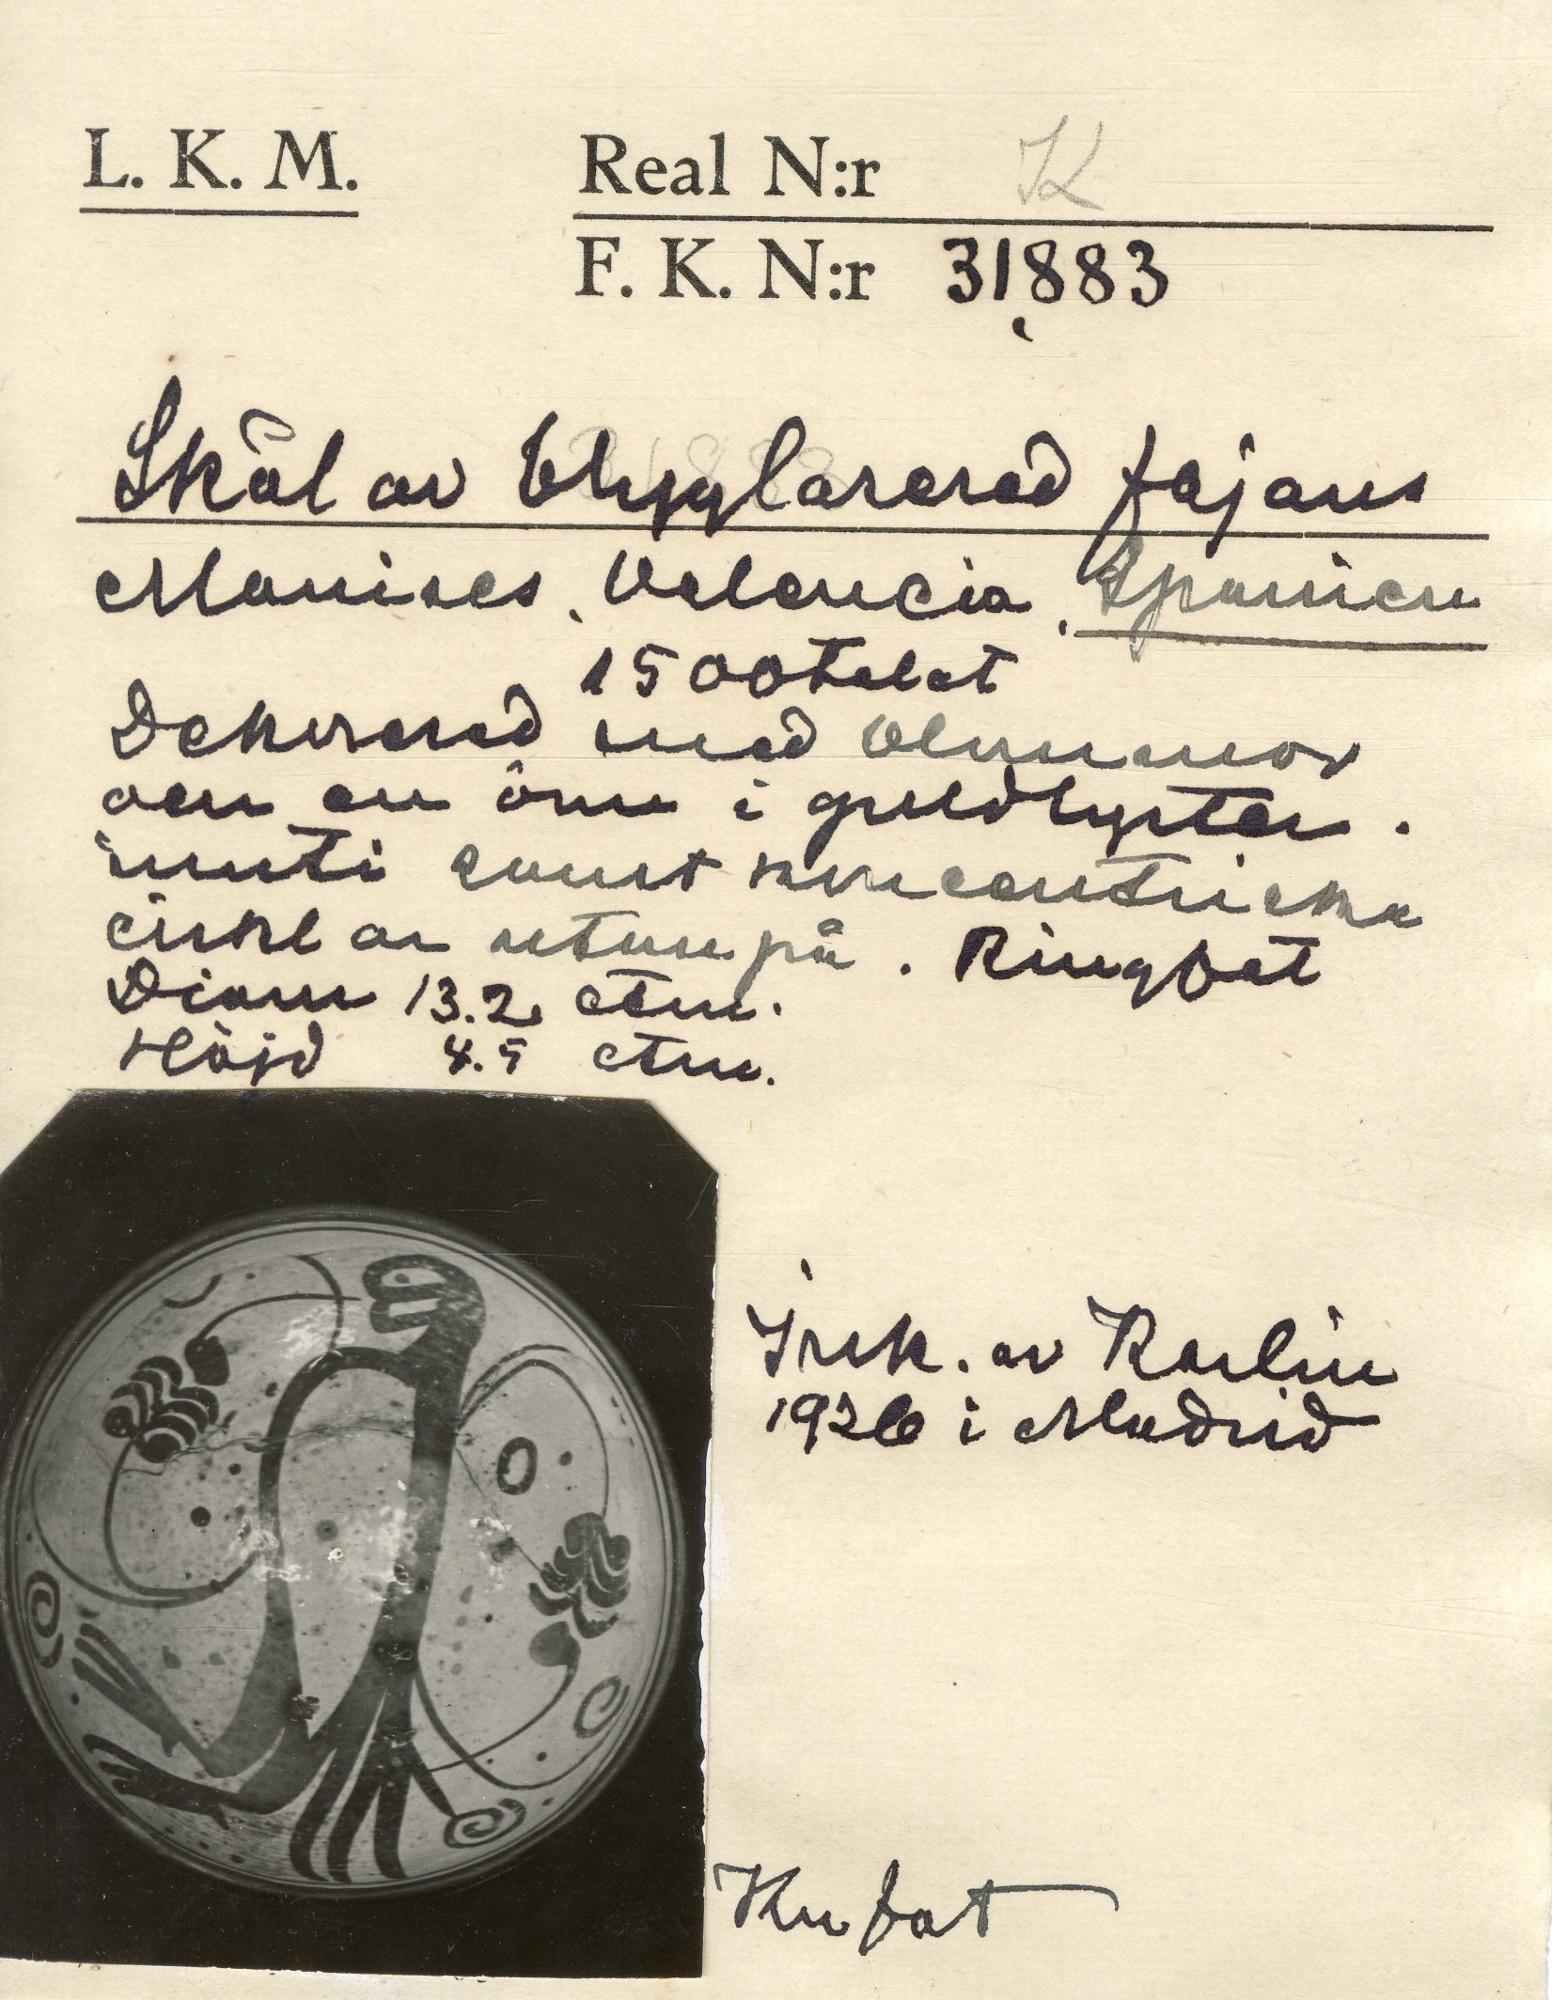 L. K. M.
Real N:r K
F. K. N:r 31883
Skål av blyglaserad fajans
Manises, Valencia, Spanien
1500talet
Dekorerad med blommor
och en örn i guldlyster.
inuti samt koncentriska
cirklar utanpå. Ringfot
Diam 13.2 ctm.
Höjd 4.5 ctm.
Ink. av Karlin
1926 i Madrid